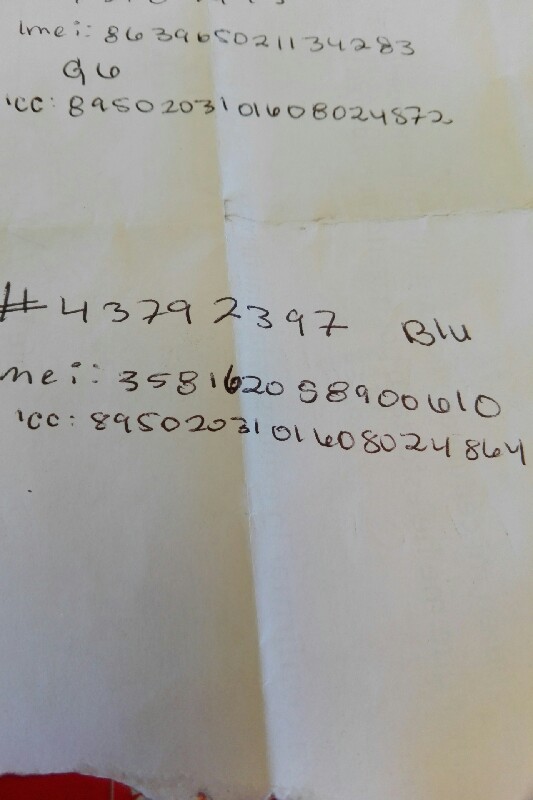 Imei: 863965021134283
G6
icc: 8950203101608024872
#43792397 Blu
mei: 358162058900610
icc: 8950203101608024864